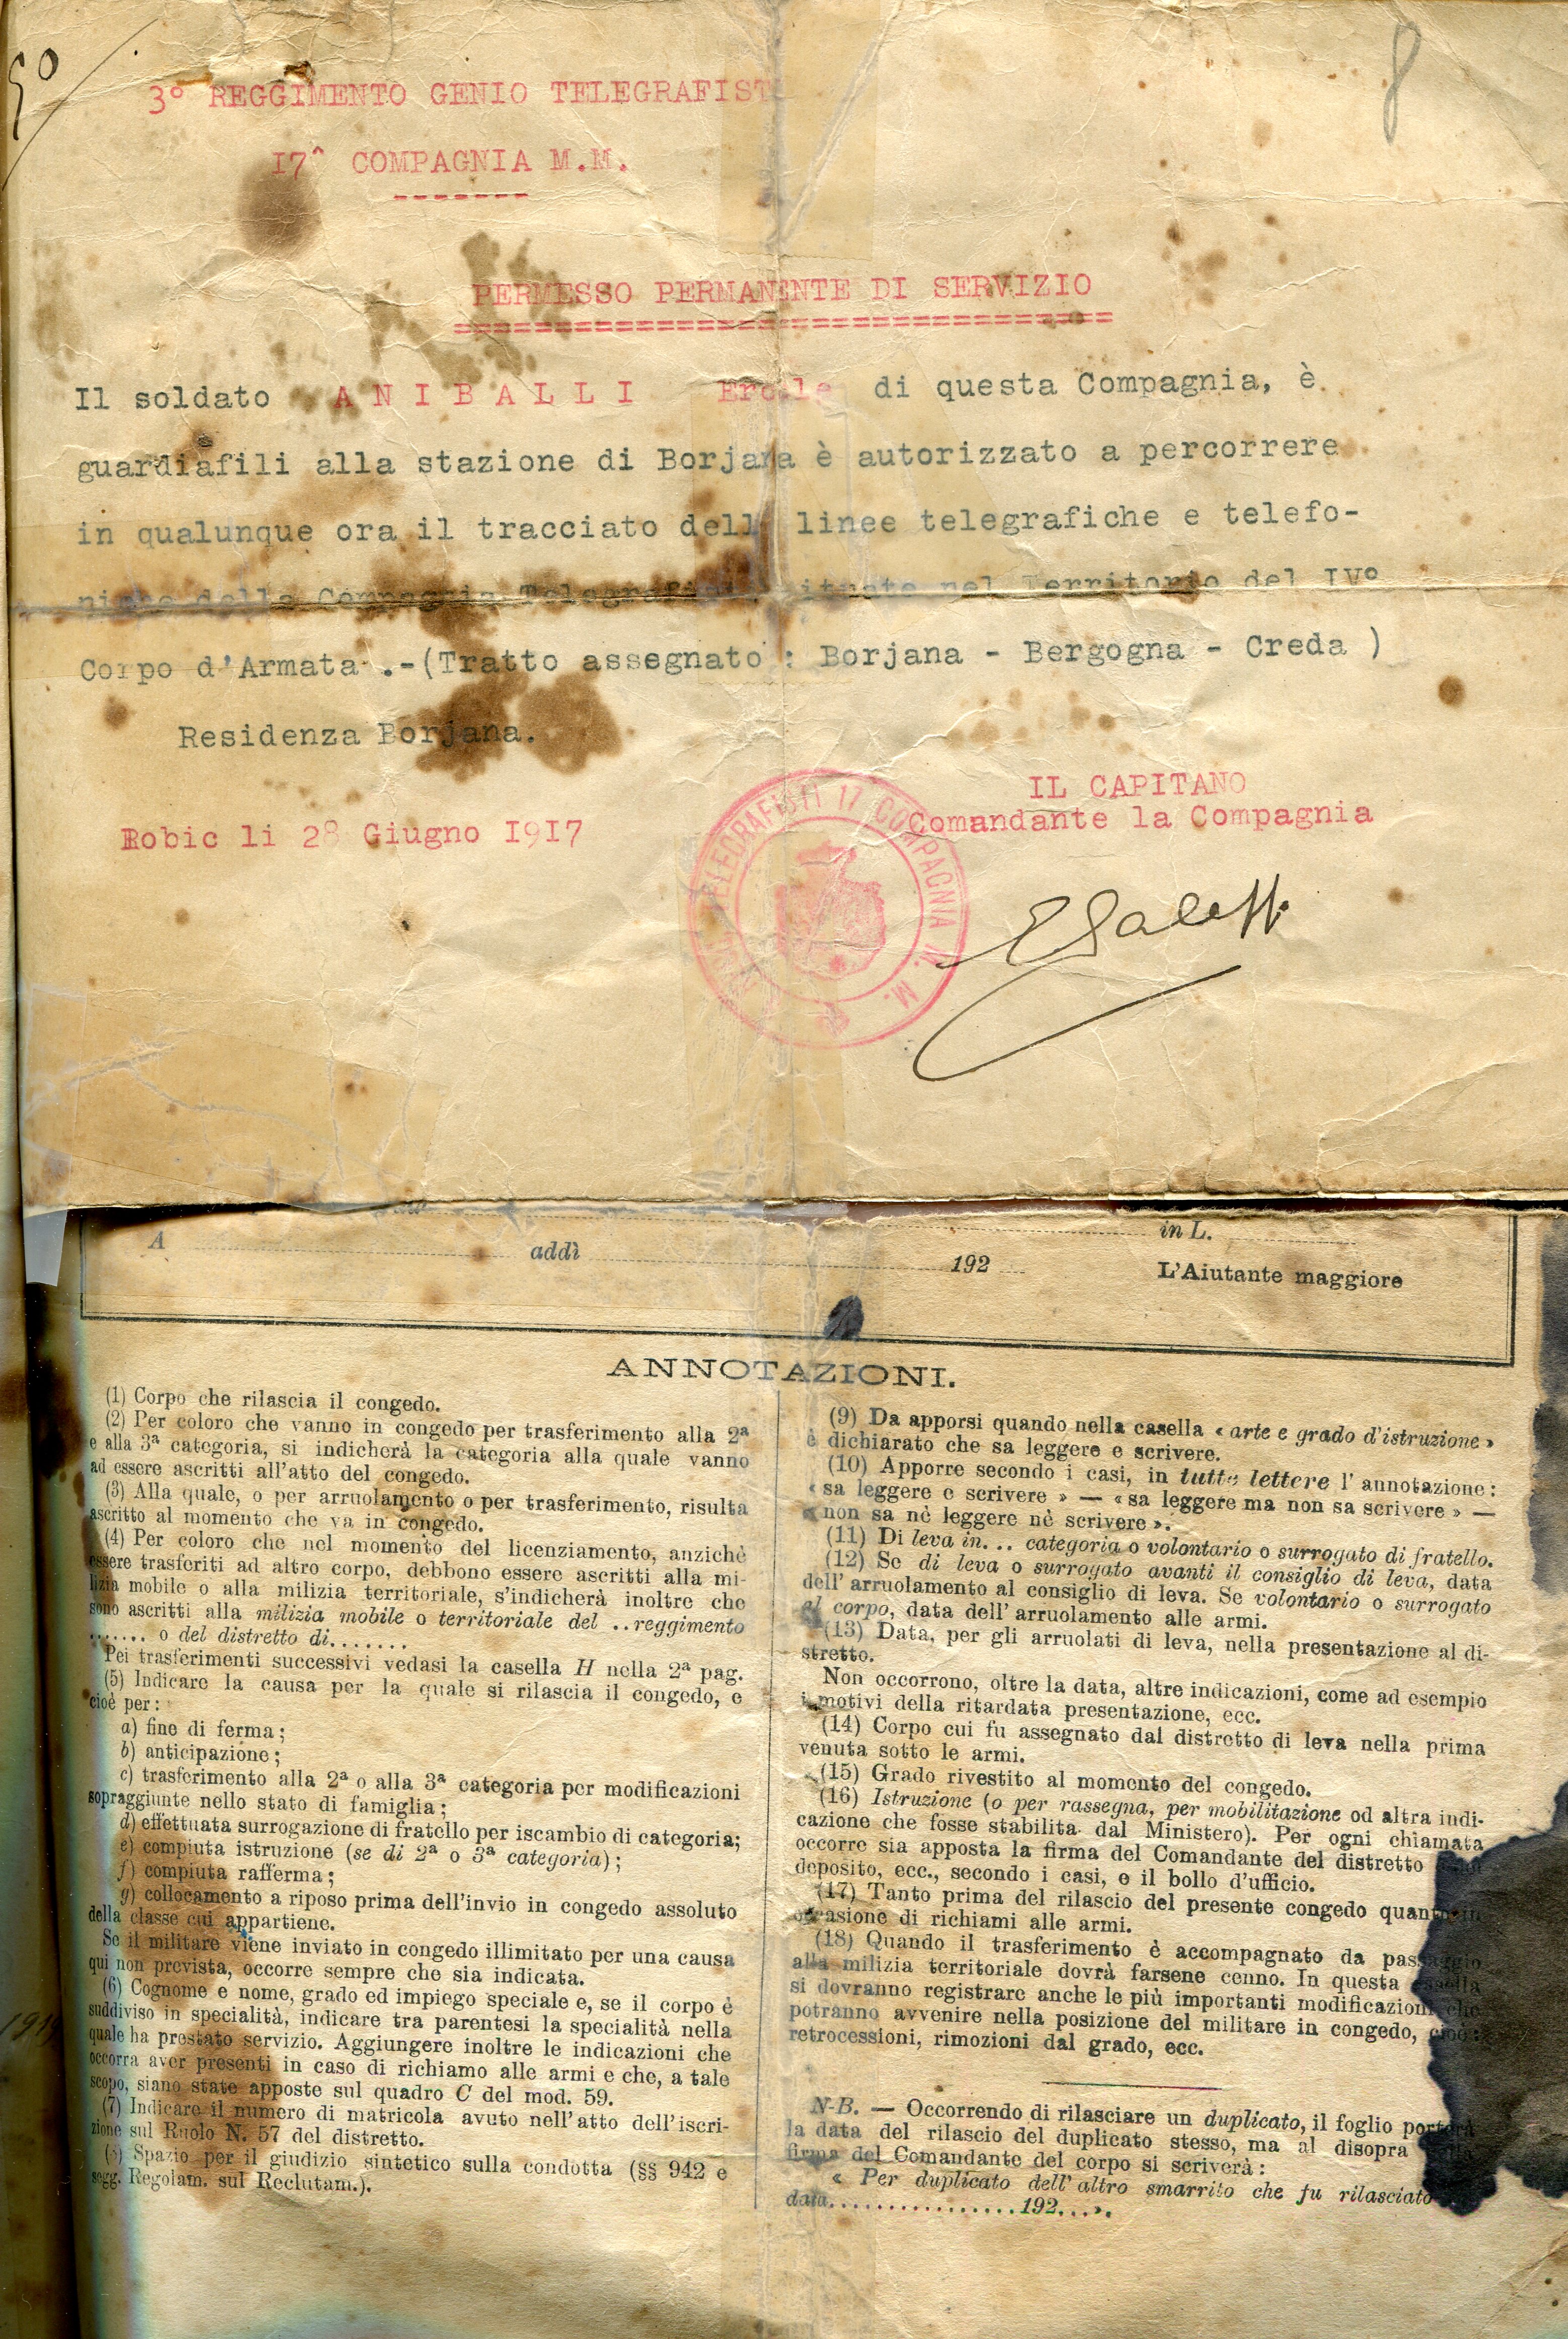 50
8
3° REGGIMENTO GENIO TELEGRAFIST
17^ COMPAGNIA M.M.
PERMESSO PERMANENTE DI SERVIZIO
Il soldato A N I B A L L I Ercole di questa Compagnia, è
guardiafili alla stazione di Borjana è autorizzato a percorrere
in qualunque ora il tracciato dell linee telegrafiche e telefo-
niche della Compagnia Telegrafisti situate nel Territorio del IV°
Corpo d'Armata .-(Tratto assegnato : Borjana - Bergogna - Creda )
Residenza Borjana.
IL CAPITANO
Comandante la Compagnia
Robic li 28 Giugno 1917
TELEGRAFISTI 17 COMPAGNIA M. M.
in L.
A addì 192
L'Aiutante maggiore
ANNOTAZIONI.
(1) Corpo che rilascia il congedo.
(2) Per coloro che vanno in congedo per trasferimento alla 2ª
e alla 3ª categoria, si indicherà la categoria alla quale vanno
ad essere ascritti all'atto del congedo.
(3) Alla quale, o per arruolamento o per trasferimento, risulta
ascritto al momento che va in congedo.
(4) Per coloro che nel momento del licenziamento, anzichè
essere trasferiti ad altro corpo, debbono essere ascritti alla mi-
lizia mobile o alla milizia territoriale, s'indicherà inoltre che
sono ascritti alla milizia mobile o territoriale del ..reggimento
....... o del distretto di.......
Pei trasferimenti successivi vedasi la casella H nella 2ª pag.
(5) Indicare la causa per la quale si rilascia il congedo, e
cioè per:
a) fine di ferma;
b) anticipazione;
c) trasferimento alla 2ª o alla 3ª categoria per modificazioni
sopraggiunte nello stato di famiglia;
d) effettuata surrogazione di fratello per iscambio di categoria;
e) compiuta istruzione (se di 2ª o 3ª categoria);
f) compiuta rafferma;
g) collocamento a riposo prima dell'invio in congedo assoluto
della classe cui appartiene.
Se il militare viene inviato in congedo illimitato per una causa
qui non prevista, occorre sempre che sia indicata.
(6) Cognome e nome, grado ed impiego speciale e, se il corpo è
suddiviso in specialità, indicare tra parentesi la specialità nella
quale ha prestato servizio. Aggiungere inoltre le indicazioni che
occorra aver presenti in caso di richiamo alle armi e che, a tale
scopo, siano state apposte sul quadro C del mod. 59.
(7) Indicare il numero di matricola avuto nell'atto dell'iscri-
zione sul Ruolo N. 57 del distretto.
(8) Spazio per il giudizio sintetico sulla condotta (§§ 942 e
segg. Regolam. sul Reclutam.).
(9) Da apporsi quando nella casella « arte e grado d'istruzione »
è dichiarato che sa leggere e scrivere.
(10) Apporre secondo i casi, in tutte lettere l'annotazione:
« sa leggere e scrivere » — « sa leggere ma non sa scrivere » —
« non sa nè leggere nè scrivere ».
(11) Di leva in... categoria o volontario o surrogato di fratello.
(12) Se di leva o surrogato avanti il consiglio di leva, data
dell'arruolamento al consiglio di leva. Se volontario o surrogato
al corpo, data dell'arruolamento alle armi.
(13) Data, per gli arruolati di leva, nella presentazione al di-
stretto.
Non occorrono, oltre la data, altre indicazioni, come ad esempio
i motivi della ritardata presentazione, ecc.
(14) Corpo cui fu assegnato dal distretto di leva nella prima
venuta sotto le armi.
(15) Grado rivestito al momento del congedo.
(16) Istruzione (o per rassegna, per mobilitazione od altra indi-
cazione che fosse stabilita dal Ministero). Per ogni chiamata
occorre sia apposta la firma del Comandante del distretto
deposito, ecc., secondo i casi, e il bollo d'ufficio.
(17) Tanto prima del rilascio del presente congedo quanto in
occasione di richiami alle armi.
(18) Quando il trasferimento è accompagnato da passaggio
alla milizia territoriale dovrà farsene cenno. In questa casella
si dovranno registrare anche le più importanti modificazioni che
potranno avvenire nella posizione del militare in congedo, cioè:
retrocessioni, rimozioni dal grado, ecc.
N-B. — Occorrendo di rilasciare un duplicato, il foglio porterà
la data del rilascio del duplicato stesso, ma al disopra
firma del Comandante del corpo si scriverà:
« Per duplicato dell'altro smarrito che fu rilasciato
data.................192....».